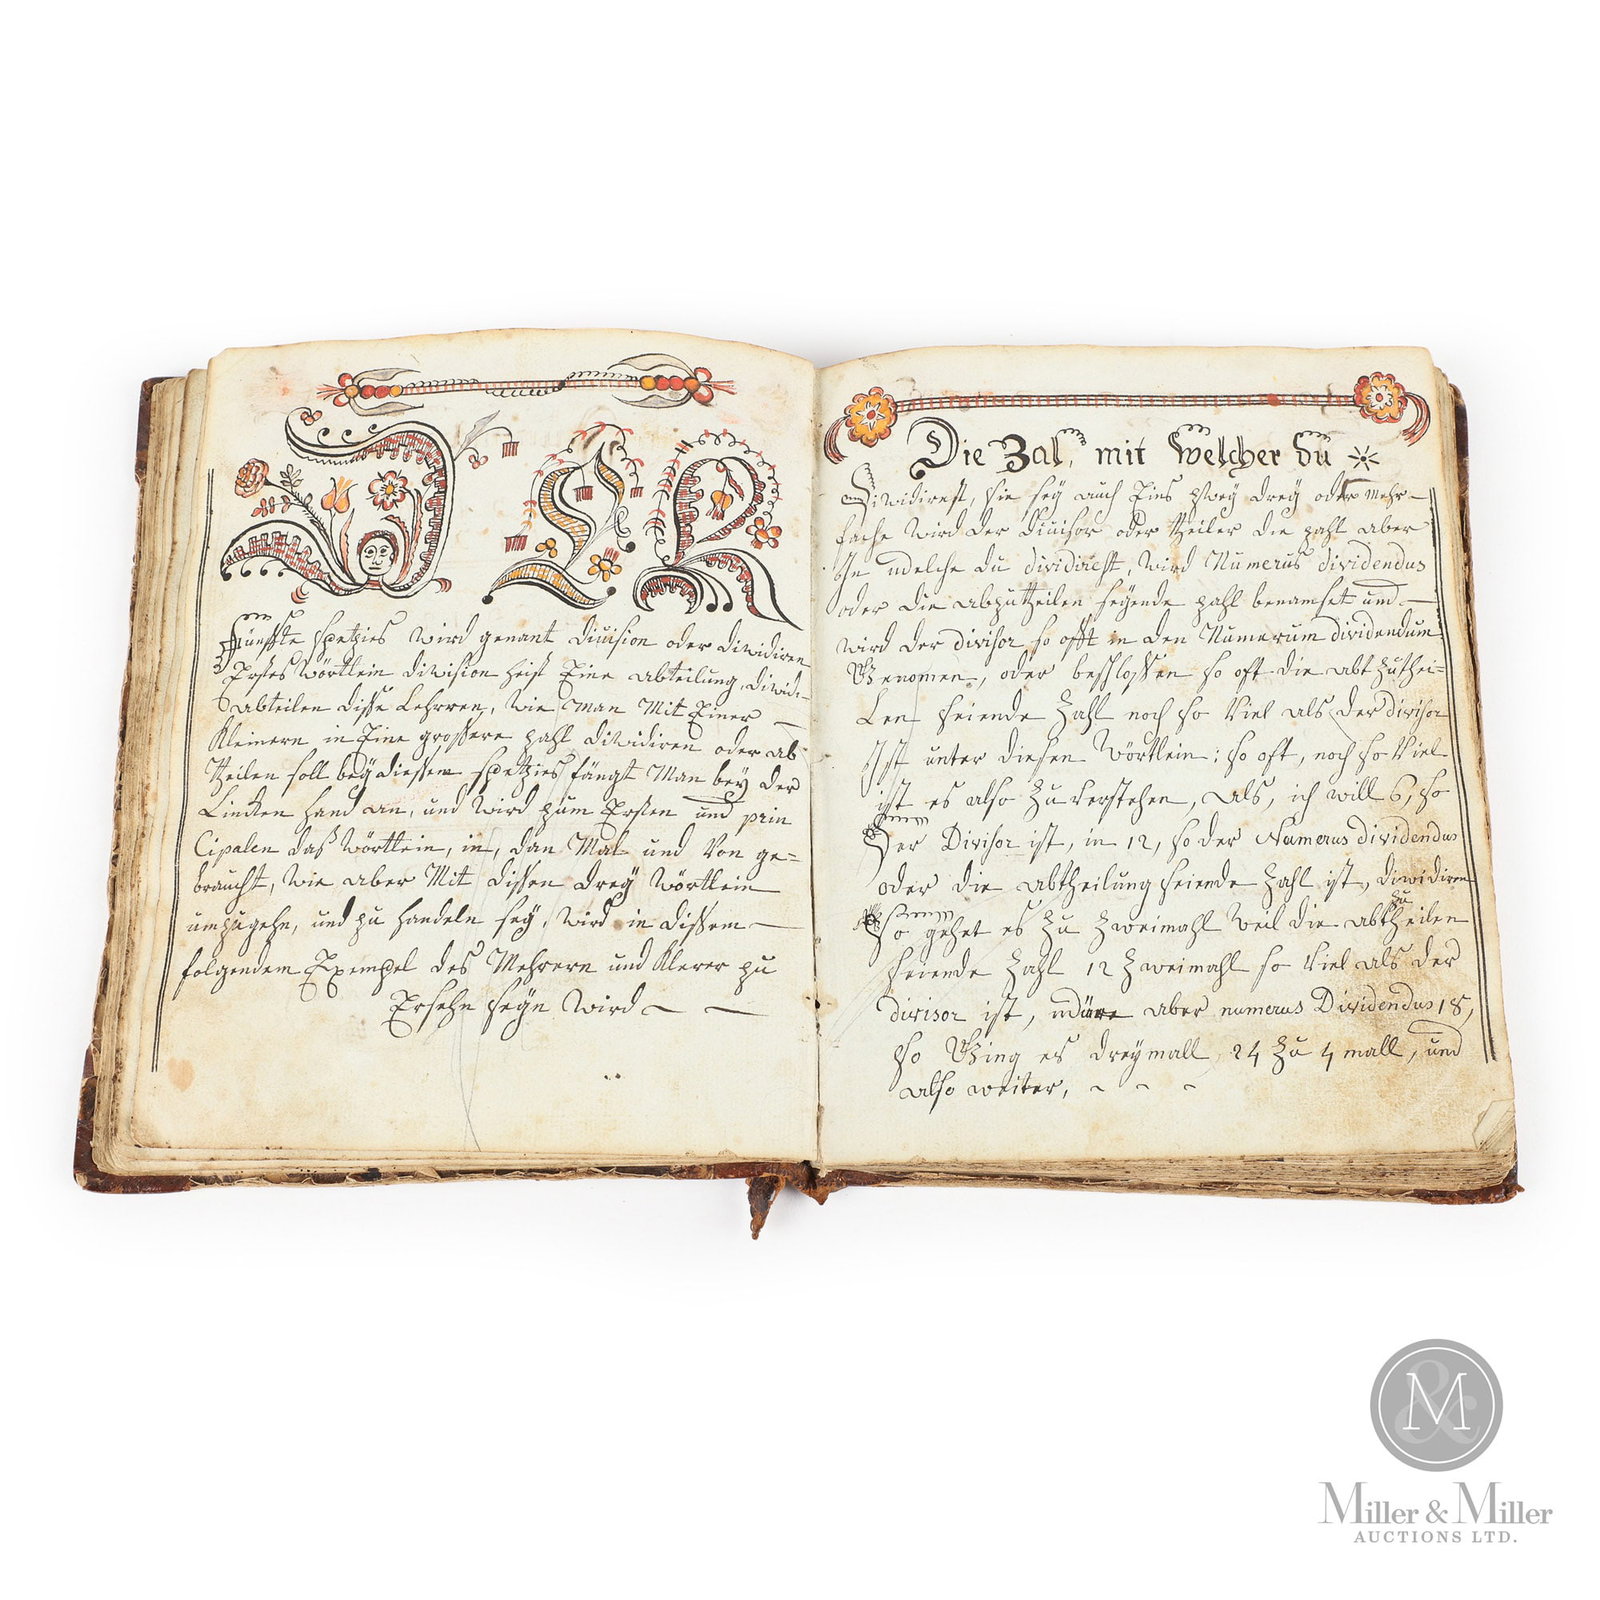 DIE
fünffte spetzies wird genant Diuision oder dividiren
Erstes wörtlein division heist Eine abteilung, dividi-
abteilen disse Lehrren, wie man Mit Einer
Kleinern in Eine grossere zahl dividiren oder ab
theilen soll bey diessem spetzies fängt Man bey der
Lincken hand an, und wird zum Ersten und prin
Cipalen das wörttlein, in, dan Mal und von ge=
braucht, wie aber Mit dissen drey wörtlein
umzugehn, und zu handeln sey, wird in dissem
folgendem Exempel des Mehrern und Klerer zu
Ersehn seyn wird
Die Zal, mit welcher du
dividirest, sie sey auch Eins zwey drey oder mehr
fache wird der Diuisor oder theiler die zahl aber
In welche du dividirest, wird Numerus dividendus
oder die abzutheilen seyende zahl benamset und
wird der divisor, so offt in den Numerum dividendum
Genomen, oder beschlossen so oft die abt Zuthei=
Len seiende Zahl noch so viel als der divisor
Ist unter diesen Wörtlein: so oft, noch so viel
ist es also Zu verstehen, als, ich will 6, so
Der Divisor ist, in 12, so der Numerus dividendus
oder die abtheilung seiende Zahl ist, dividiren
So gehet es Zu Zweimahl weil die abtheilen
zu
seiende Zahl 12 Zweimahl so viel als der
divisor ist, wäre aber numerus Dividendus 18,
so Ging es dreymall, 24 Zu 4 mall, und
also weiter,
M&M
Miller & Miller
AUCTIONS LTD.